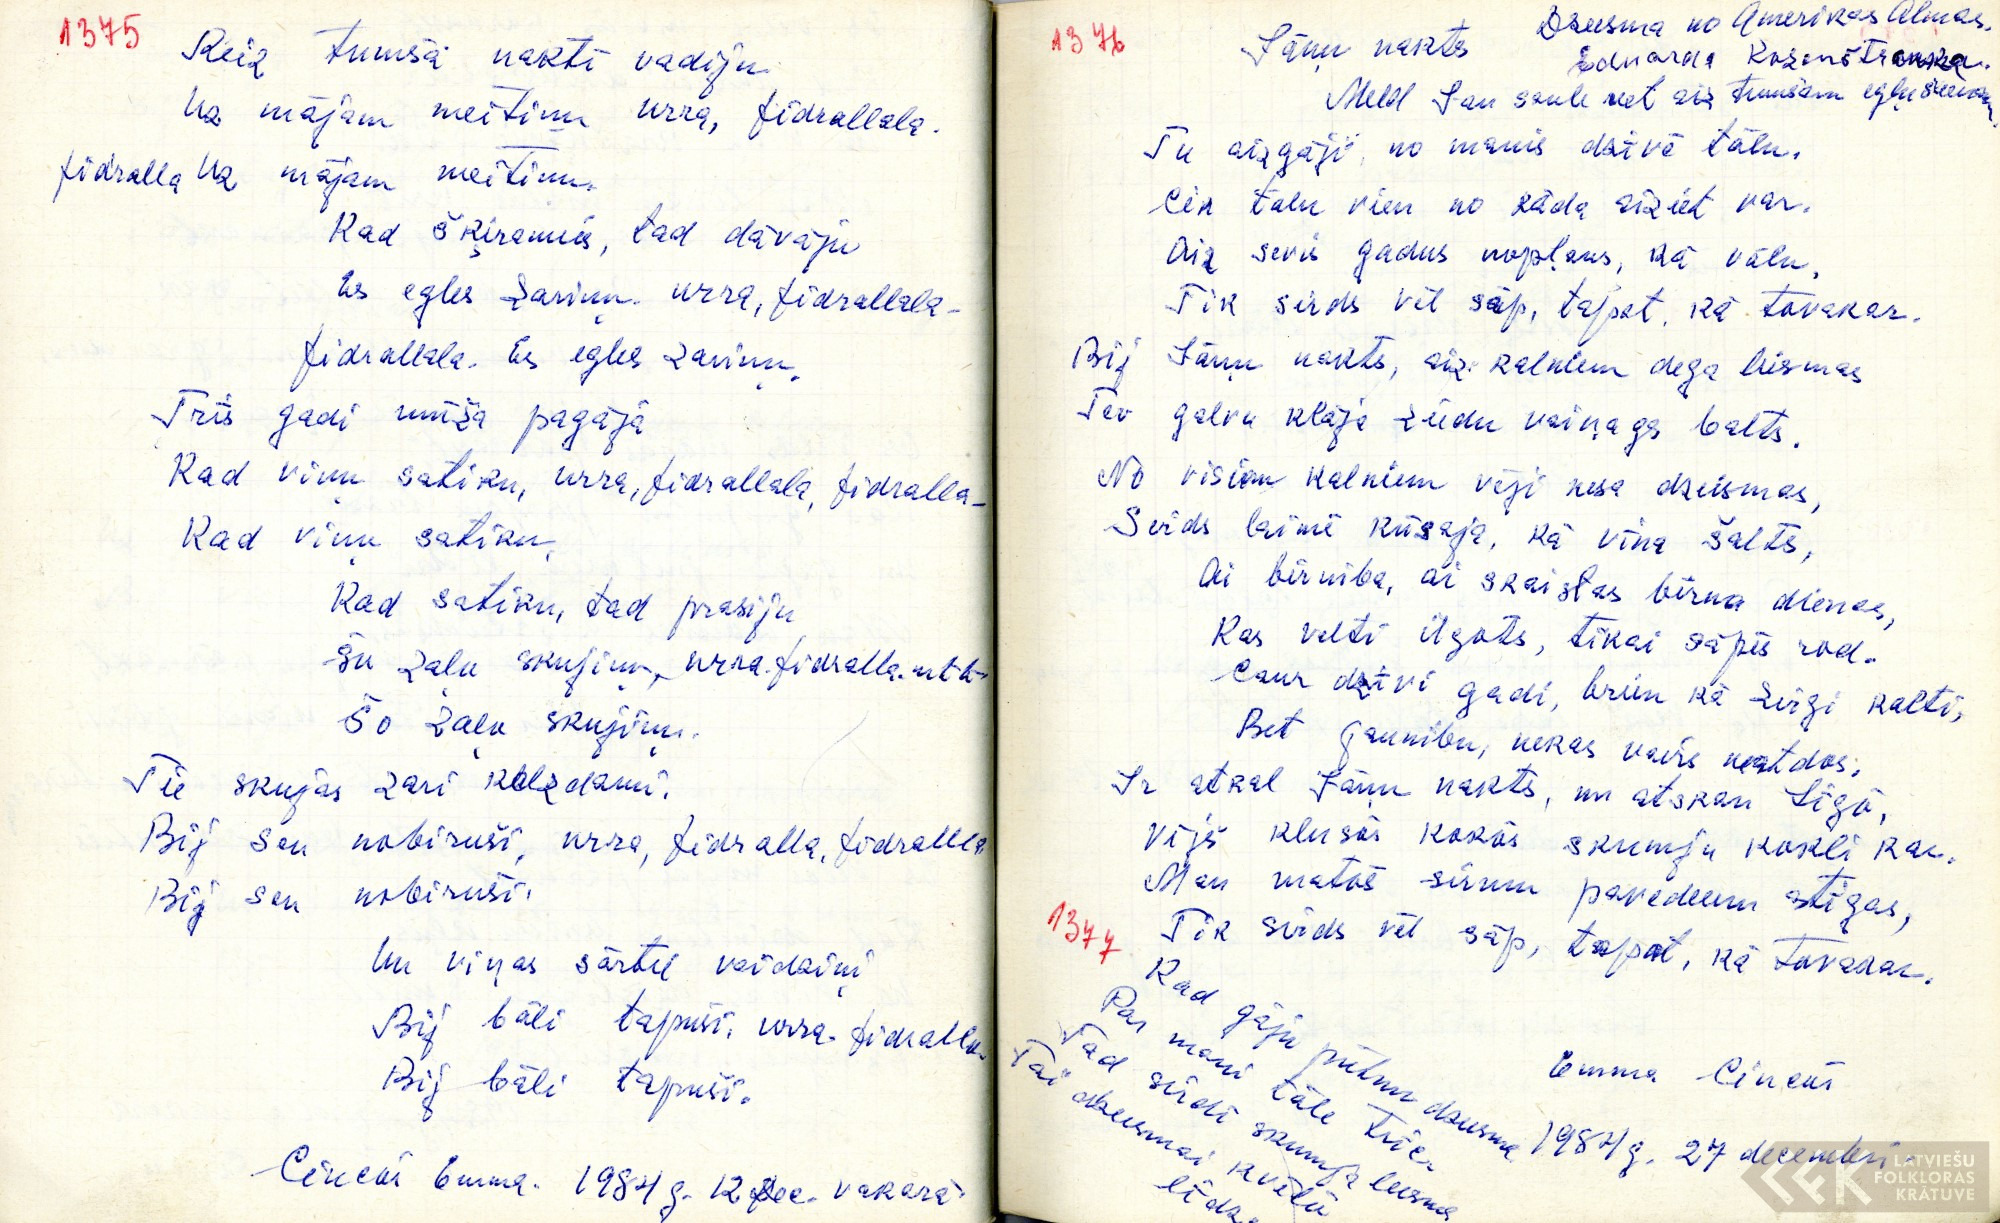 1375
Reiz tumšā naktī vadiju
Uz mājam meitiņu urra, fidrallala.
fidralla Uz mājam meitiņu.
Kad šķiramies, tad dāvāju
Es egles zariņu. urra, fidrallala-
fidrallala. Es egles zariņu.
Trīs gadi mūža pagājā
Kad viņu satiku, urra, fidrallala, fidralla-
Kad viņu satiku,
Kad satiku, tad prasiju
Šu zaļu skujiņu, urra. fidralla.
Šo zaļu skujiņu.
Tie skujas zari
Bij sen nobiruši, urra, fidralla, fidrallla
Bij sen nobiruši.
Un viņas sārtie vaidziņi
Bij bāli tapuši. urra. fidralla.
Bij bāli tapuši.
Cincus Emma. 1984 g. 12 dec. vakarā.
1376
Jāņu nakts Dzeesma no Amerikas Almas.
Eduarda
Meld Jau saule riet aiz tumšam egļu
Tu aizgāji, no manis dzīvē tālu.
Cik tālu vien no kāda aiziet var.
Aiz sevis gadus nopļaus, kā vālu.
Tik sirds vēl sāp, tapat, kā tovakar.
Bij Jāņu nakts, aiz kalniem dega liesmas
Tev galvu klāja ziedu vaiņags balts.
No visiem kalniem vēji nesa dzeismas,
Sirds laimē kūsaja, kā vīna šalts,
Ai bērniba, ai skaistas bērna dienas,
Kas velti ilgots, tikai sāpes rod.
Caur dzīvi gadi, brien kā zirgi kalti,
Bet jaunibu, nekas vairs neatdos.
Ir atkal Jāņu nakts, un atskan Līgo,
Vējš klusos kokos skumju kokli kar.
Man matos sirmu pavedienu stīgas,
Tik sirds vēl sāp, tapat, kā tovakar.
1377
Kad gāju pūlmu dzeesma
Par mani tāle
Tad sirdi skumja leesma
Tai dzeesmai kvēlo
līdz.
Emma Cincus
1984 g. 27 decembri.
LATVIEŠU
FOLKLORAS
KRĀTUVE